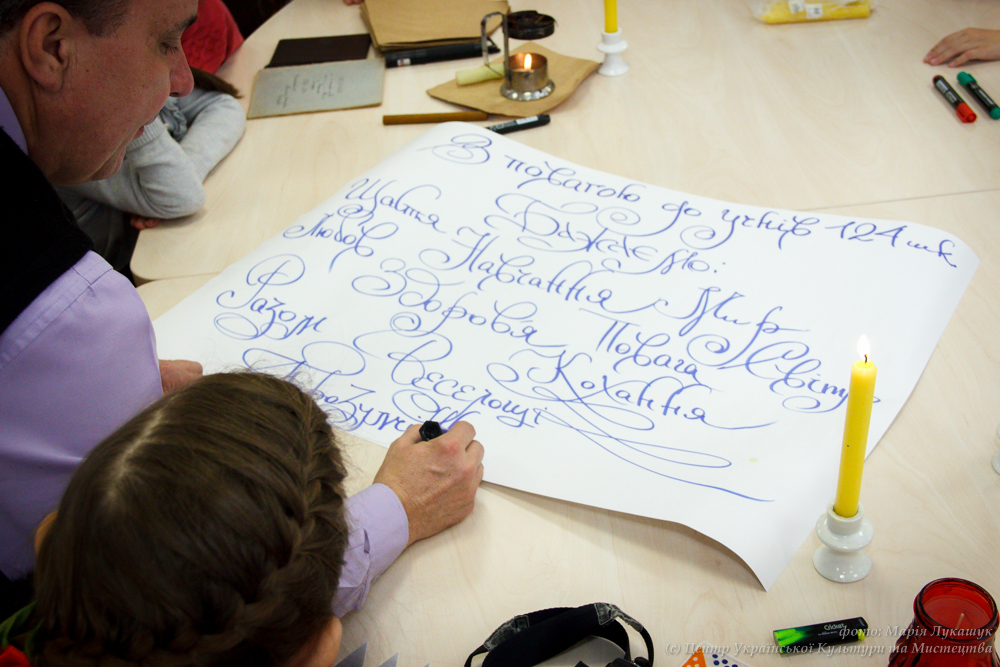 З повагою до учнів 124 шк
Бажаємо:
Щастя Навчання Мир
Любов Здоровя Повага Світу
Разом Веселощі Кохання
фото: Марія Лукашук
(c) Центр Української Культури та Мистецтва
Cricket